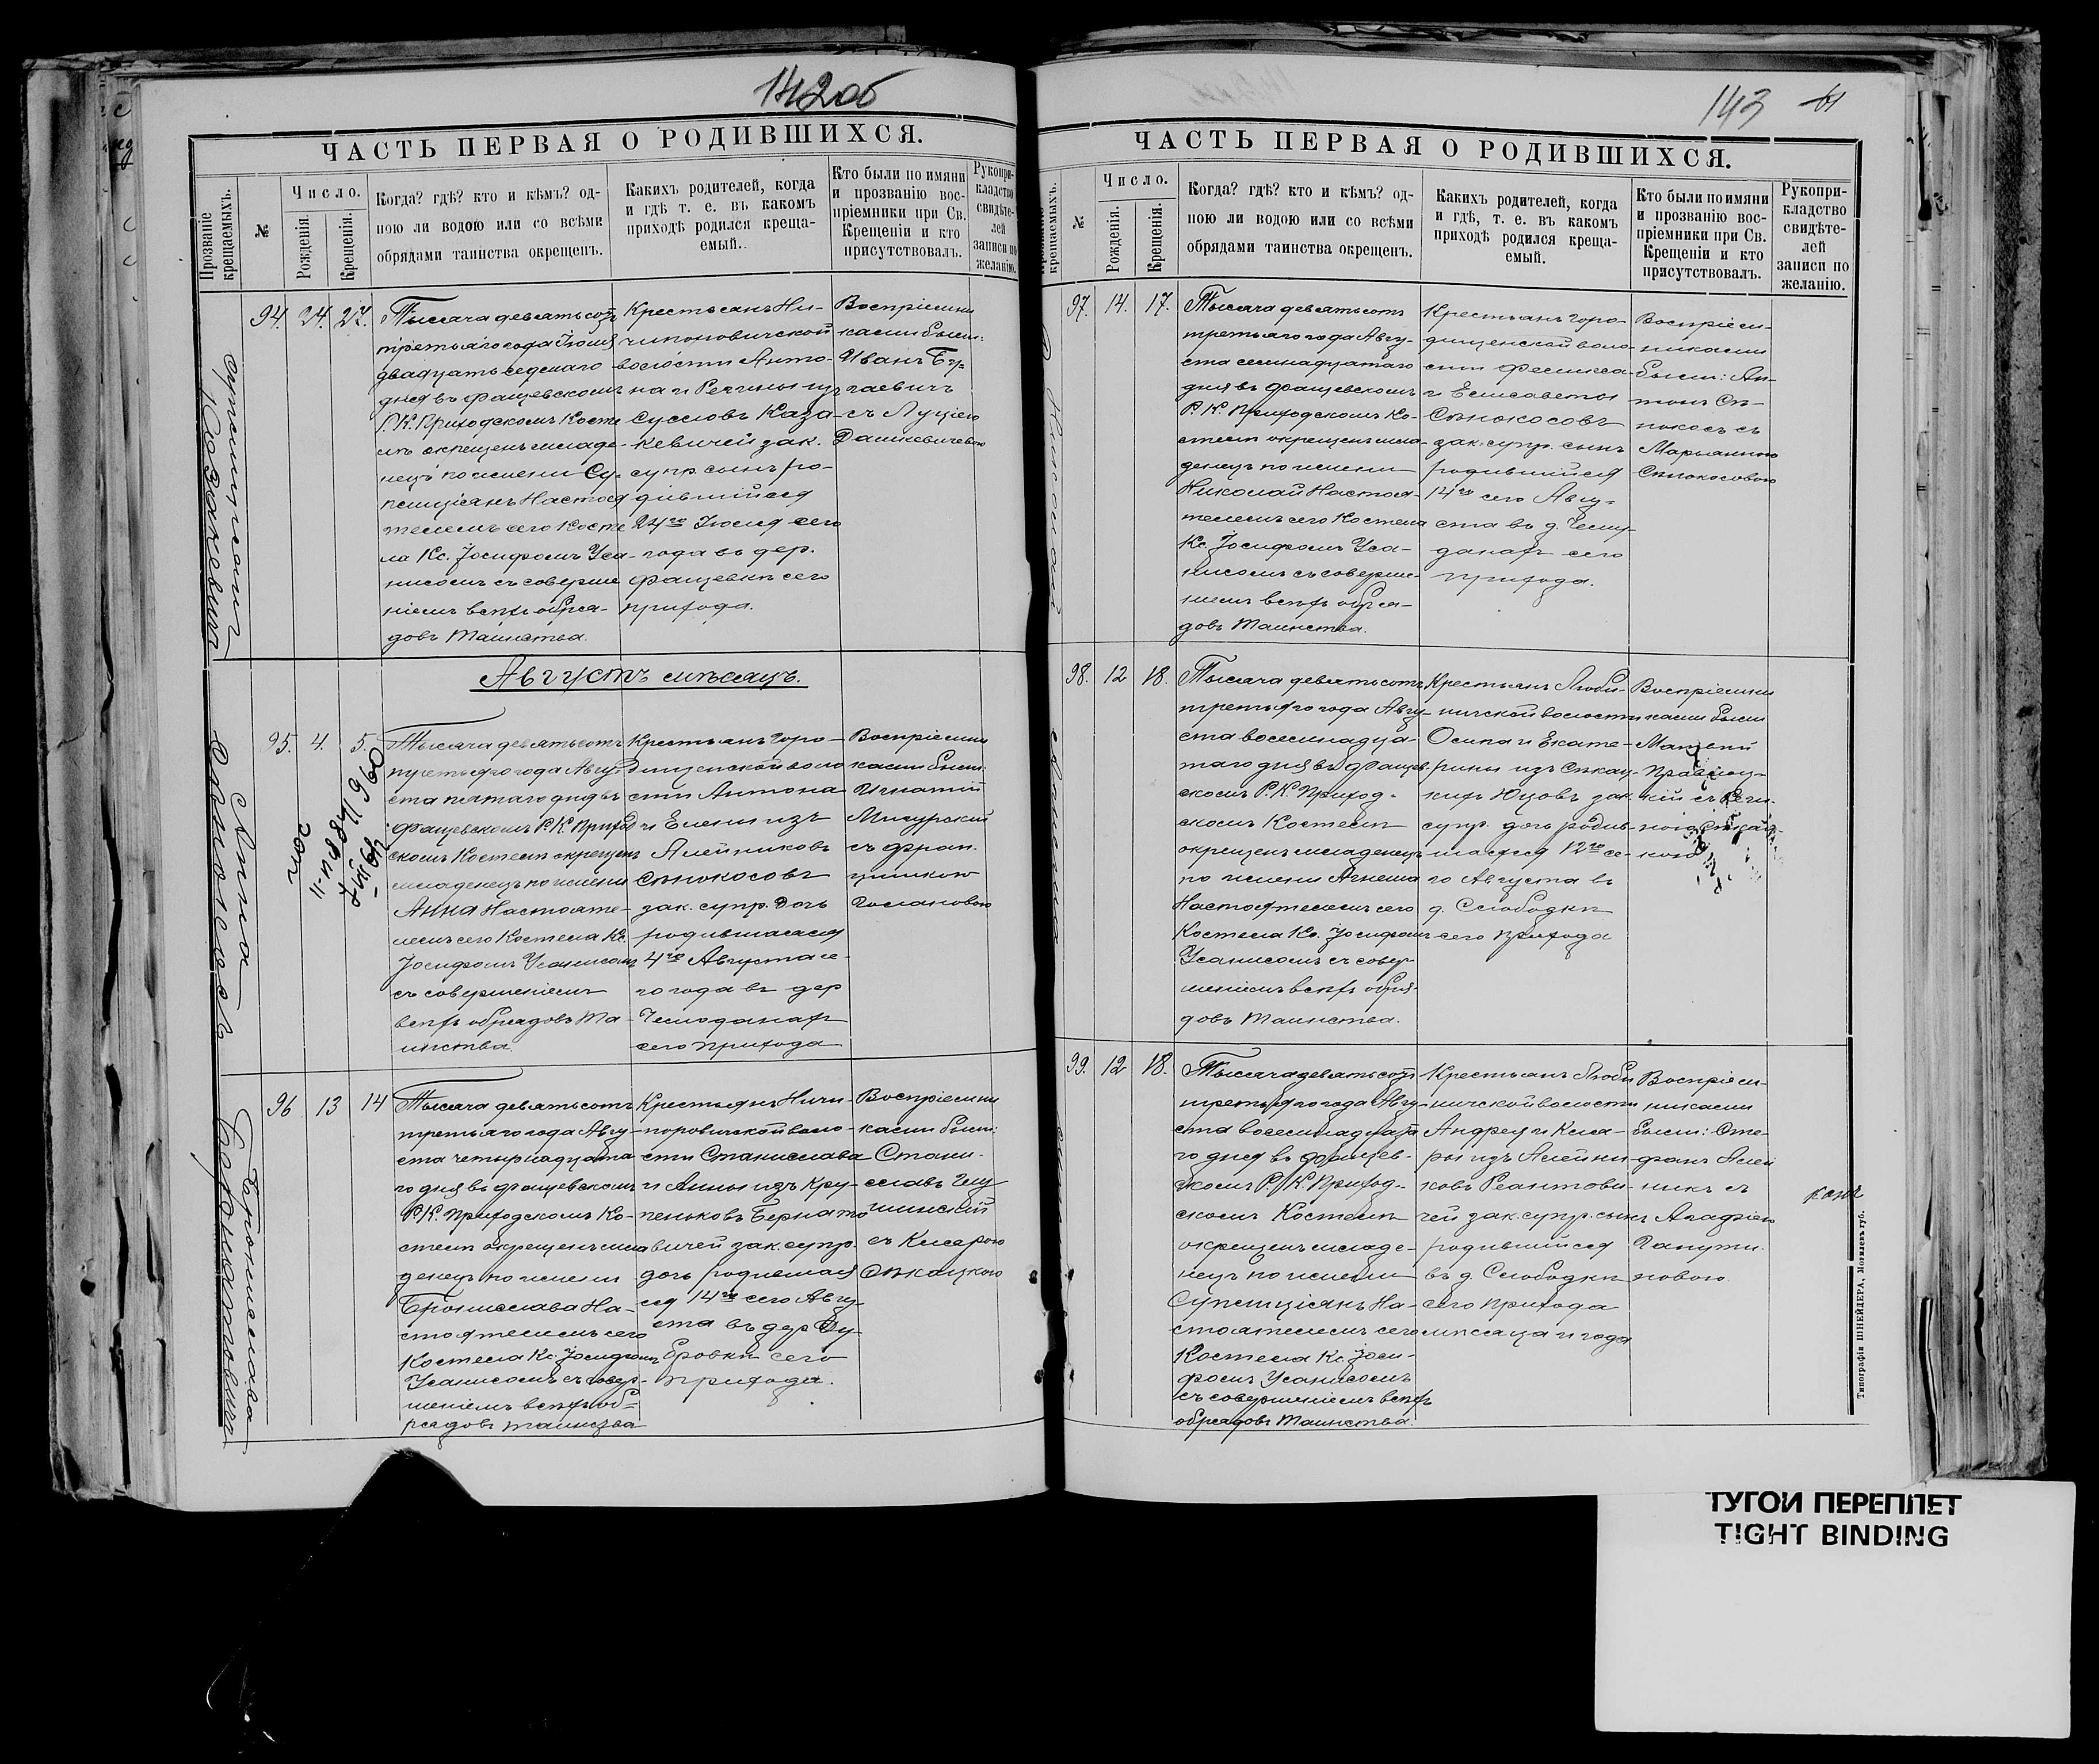 142об
ЧАСТЬ ПЕРВАЯ О РОДИВШИХСЯ.
Прозваніе крещаемыхъ.
№
Число.
Рожденія.
Крещенія.
Когда? гдѣ? кто и кѣмъ? од-
ною ли водою или со всѣми
обрядами таинства окрещенъ.
Какихъ родителей, когда
и гдѣ т. е. въ какомъ
приходѣ родился креща-
емый.
Кто были по имяни
и прозванію вос-
пріемники при Св.
Крещеніи и кто
присутствовалъ.
Рукопри-
кладство
свидѣте-
лей
записи по
желанію.
94. 24. 27.
Тысяча девятьсотъ
третьяго года Іюля
двадцать седьмаго
дня въ Фащевскомъ
Р. К. Приходскомъ Косте
лѣ окрещенъ младе-
нецъ по имени Су-
плиціянъ Настоя
телемъ сего Косте
ла Кс. Іосифомъ Уса-
нисомъ съ соверше
ніемъ всѣхъ обря-
довъ Таинства.
Крестьянъ Ни-
чипоровичской
волости Анто-
на и Регины изъ
Сусловъ Каза-
кевичей зак.
супр. сынъ ро-
дившійся
24го Іюля сего
года въ дер.
Фащевкѣ сего
прихода.
Воспріемни
ками были:
Иванъ Бу-
гаевичъ
съ Луціею
Дашкевичевою
Августъ мѣсяцъ.
Анна
Сѣнокосъ
95. 4. 5.
Тысяча девятьсотъ
третьяго года Авгу
ста пятаго дня въ
Фащевскомъ Р. К. Приход
скомъ Костелѣ окрещенъ
младенецъ по имени
Анна Настояте-
лемъ сего Костела Кс.
Іосифомъ Усанисомъ
съ совершеніемъ
всѣхъ обрядовъ Та-
инства.
Крестьянъ Горо-
дищенской воло
сти Антона
и Елены изъ
Алейниковъ
Сѣнокосовъ
зак. супр. дочь
родившаяся
4го Августа се-
го года въ дер
Чемоданахъ
сего прихода
Воспріемни
ками были:
Игнатій
Мигурскій
съ Фран-
цишкою
Бронислава
Бернатовичъ
96 13 14
Тысяча девятьсотъ
третьяго года Авгу-
ста четырнадцата
го дня въ Фащевскомъ
Р. К. Приходскомъ Ко-
стелѣ окрещенъ мла
денецъ по имени
Бронислава На-
стоятелемъ сего
Костела Кс. Іосифомъ
Усанисомъ съ совер-
шеніемъ всѣхъ об-
рядовъ таинства
Крестьянъ Ничи-
поровичской воло-
сти Станислава
и Анны изъ Кру-
пеньковъ Бернато
вичей зак. супр.
дочь родившая
ся 14го сего Авгу-
ста въ дер Ду-
бровкѣ сего
прихода.
Воспріемни
ками были:
Стани-
славъ
съ Кларою
Сѣкацкою
143
ЧАСТЬ ПЕРВАЯ О РОДИВШИХСЯ.
крещаемыхъ.
№
Число.
Рожденія.
Крещенія.
Когда? гдѣ? кто и кѣмъ? од-
ною ли водою или со всѣми
обрядами таинства окрещенъ.
Какихъ родителей, когда
и гдѣ, т. е. въ какомъ
приходѣ родился креща-
емый.
Кто были по имяни
и прозванію вос-
пріемники при Св.
Крещеніи и кто
присутствовалъ.
Рукопри-
кладство
свидѣте-
лей
записи по
желанію.
97. 14. 17.
Тысяча девятьсотъ
третьяго года Авгу-
ста семнадцатаго
дня въ Фащевскомъ
Р. К. Приходскомъ Ко-
стелѣ окрещенъ мла-
денецъ по имени
Николай Настоя-
телемъ сего Костела
Кс. Іосифомъ Уса-
нисомъ съ соверше-
ніемъ всѣхъ обря-
довъ Таинства.
Крестьянъ Горо-
дищенской воло-
сти Феликса
и Елисаветы
Сѣнокосовъ
зак. супр. сынъ
родившійся
14го сего Авгу-
ста въ д. Чему-
данахъ сего
прихода.
Воспріем-
никами
были: Ан-
тонъ Сѣ-
нокосъ съ
Марьянною
Сѣнокосовою
98. 12 18.
Тысяча девятьсотъ
третьяго года Авгу-
ста восемнадца-
таго дня въ Фащев-
скомъ Р. К. Приход-
скомъ Костелѣ
окрещенъ младенецъ
по имени Агнеша
Настоятелемъ сего
Костела Кс. Іосифомъ
Усанисомъ съ совер-
шеніемъ всѣхъ обря-
довъ Таинства.
Крестьянъ Люби-
ничской волости
Осипа и Екате-
рины изъ Сѣкац-
кихъ Юцовъ зак.
супр. дочь родив-
шаяся 12го се-
го Августа въ
д. Слободкѣ
сего прихода
Воспріемни
ками были
99. 12 18.
Тысяча девятьсотъ
третьяго года Авгу-
ста восемнадцата
го дня въ Фащев-
скомъ Р. К. Приход-
скомъ Костелѣ
окрещенъ младе-
нецъ по имени
Суплиціянъ На-
стоятелемъ сего
Костела Кс. Іоси-
фомъ Усанисомъ
съ совершеніемъ всѣхъ
обрядовъ Таинства.
Крестьянъ Люби
ничской волости
Андрея и Кла-
ры изъ Алейни-
ковъ Реантови-
чей зак. супр. сынъ
родившійся
въ д. Слободкѣ
сего прихода
мѣсяца и года
Воспріем-
никами
были: Сте-
фанъ Алей
никъ съ
Агафіею
Типографія ШНЕЙДЕРА, Могилевъ губ.
ТУГОЙ ПЕРЕПЛЕТ
TIGHT BINDING